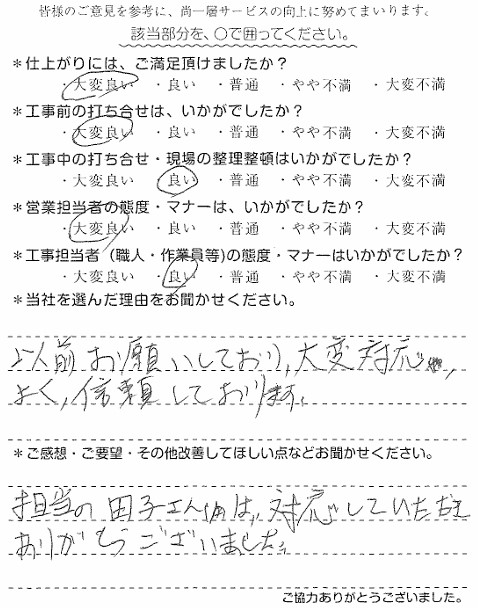 皆様のご意見を参考に、尚一層サービスの向上に努めてまいります。
該当部分を、○で囲ってください。
＊仕上がりには、ご満足頂けましたか？
・大変良い ・良い ・普通 ・やや不満 ・大変不満
＊工事前の打ち合せは、いかがでしたか？
・大変良い ・良い ・普通 ・やや不満 ・大変不満
＊工事中の打ち合せ・現場の整理整頓はいかがでしたか？
・大変良い ・良い ・普通 ・やや不満 ・大変不満
＊営業担当者の態度・マナーは、いかがでしたか？
・大変良い ・良い ・普通 ・やや不満 ・大変不満
＊工事担当者（職人・作業員等）の態度・マナーはいかがでしたか？
・大変良い ・良い ・普通 ・やや不満 ・大変不満
＊当社を選んだ理由をお聞かせください。
以前お願いしており、大変対応
よく、信頼しております。
＊ご感想・ご要望・その他改善してほしい点などお聞かせください。
担当の田子さんには、対応していただき
ありがとうございました。
ご協力ありがとうございました。